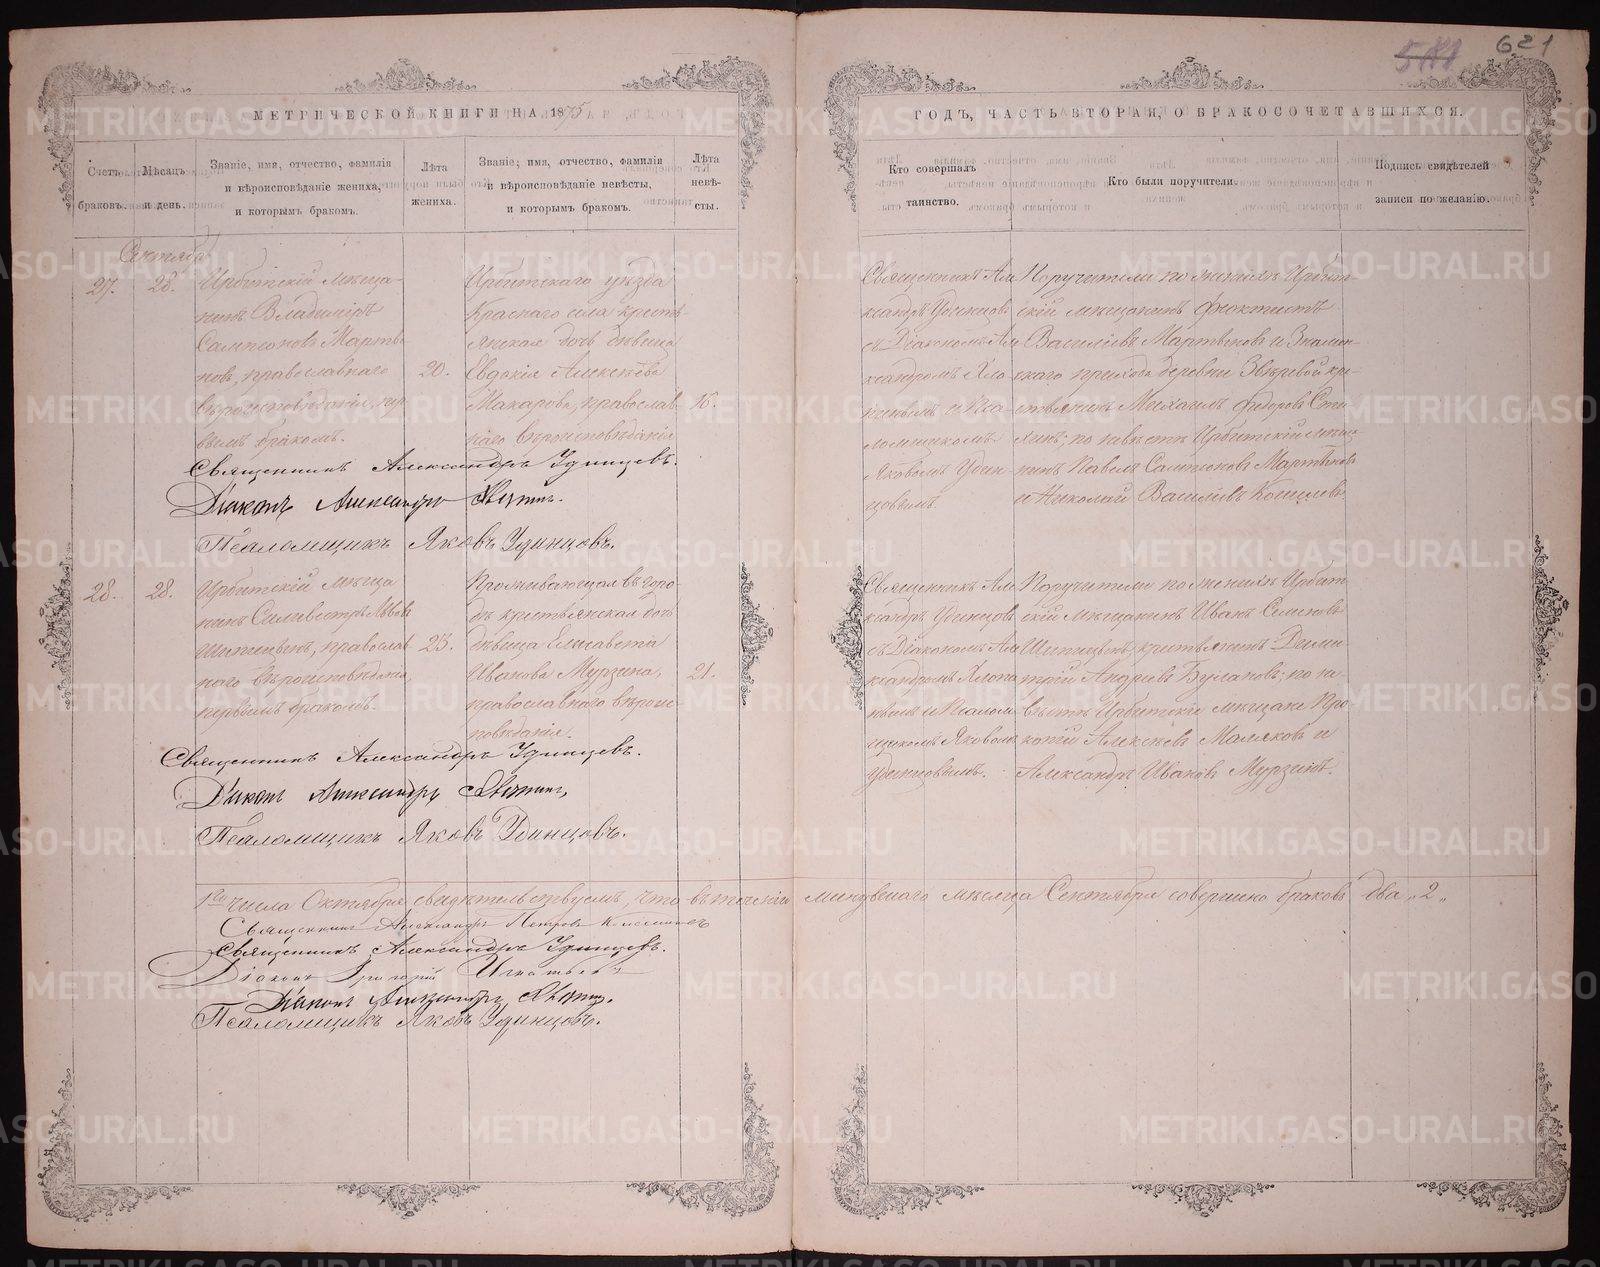 621
МЕТРИЧЕСКОЙ КНИГИ НА 1875 ГОДЪ, ЧАСТЬ ВТОРАЯ, О БРАКОСОЧЕТАВШИХСЯ.
Счетъ браковъ.
Мѣсяцъ и день.
Званіе, имя, отчество, фамилія
и вѣроисповѣданіе жениха,
и которымъ бракомъ.
Лѣта
жениха.
Званіе, имя, отчество, фамилія
и вѣроисповѣданіе невѣсты,
и которымъ бракомъ.
Лѣта
невѣ-
сты.
Кто совершалъ
таинство.
Кто были поручители.
Подпись свидѣтелей
записи по желанію.
Сентябрь
27.
28.
Ирбитскій мѣща-
нинъ Владиміръ
Сампсоновъ Мартьи
новъ, православнаго
вѣроисповѣданія, пер
вымъ бракомъ.
20.
Ирбитскаго уѣзда
Краснаго села кресть
янская дочь дѣвица
Евдокія Алексѣева
Макарова, православ
наго вѣроисповѣданія
16.
Священникъ Але
ксандръ Удинцовъ
съ Діакономъ Але
ксандромъ
и Пса
ломщикомъ
Яковомъ Удин
цовымъ.
Поручители по женихѣ Ирбит
скій мѣщанинъ Феоктистъ
Василіевъ Мартьяновъ и Знамен
скаго прихода деревни Звѣревой кре
стьянинъ Михаилъ Федоровъ
по невѣстѣ Ирбитскій мѣща
нинъ Павелъ Сампсоновъ Мартьяновъ
и Николай Василіевъ
Священникъ Александръ Удинцевъ.
Діаконъ Александръ
Псаломщикъ Яковъ Удинцовъ.
28.
28.
Ирбитскій мѣща
нинъ Силивестръ Львовъ
Шипицынъ, православ
наго вѣроисповѣданія,
первымъ бракомъ.
23.
Проживающая въ горо
дѣ крестьянская дочь
дѣвица Елисавета
Иванова Мурзина,
православнаго вѣроис
повѣданія.
21.
Священникъ Але
ксандръ Удинцовъ
съ Діакономъ Але
ксандромъ
и Псалом
щикомъ Яковомъ
Удинцовымъ.
Поручители по женихѣ Ирбит
скій мѣщанинъ Иванъ Семеновъ
Шипицынъ, крестьянинъ Дими
трій Андреевъ Булановъ; по не
вѣстѣ Ирбитскіе мѣщане Про
копій Алексѣевъ Маляковъ и
Александръ Ивановъ Мурзинъ.
Священникъ Александръ Удинцевъ.
Діаконъ Александръ
Псаломщикъ Яковъ Удинцовъ.
1го числа Октября свидѣтельствуемъ, что въ теченіи минувшаго мѣсяца Сентября совершено браковъ два „2„
Священникъ Александръ Петровъ
Священникъ Александръ Удинцевъ.
Діаконъ Григорій Игнатьевъ
Діаконъ Александръ
Псаломщикъ Яковъ Удинцовъ.
METRIKI.GASO-URAL.RU